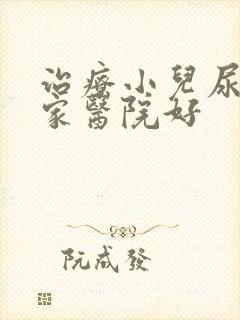 治療小兒尿
家醫院好
阮成發